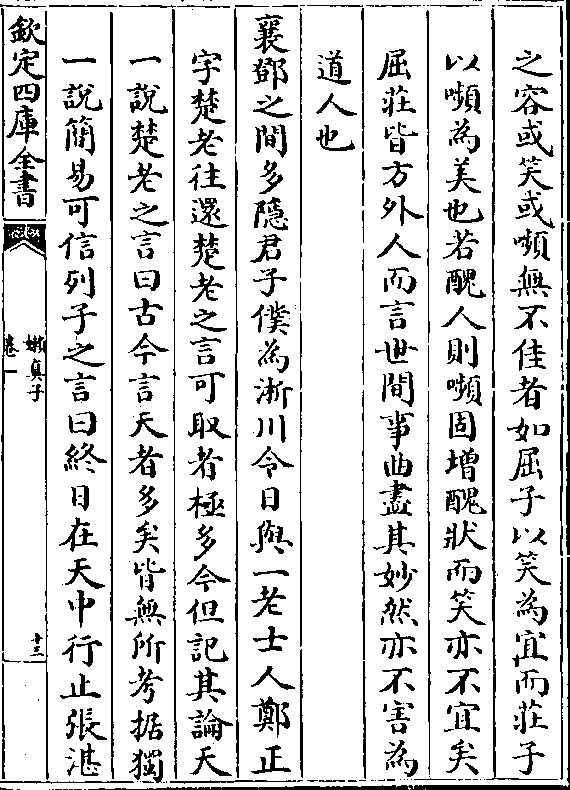 之容或笑或嚬無不佳者如屈子以笑為宜而莊子
以嚬為美也若醜人則嚬固增醜狀而笑亦不宜矣
屈莊皆方外人而言世間事曲盡其妙然亦不害為
道人也
襄鄧之間多隱君子僕為淅川令日與一老士人鄭正
字楚老往還楚老之言可取者極多今但記其論天
一說楚老之言曰古今言天者多矣皆無所考据獨
一說簡易可信列子之言曰終日在天中行止張湛
欽定四庫全書
嬾真子
卷一
十三